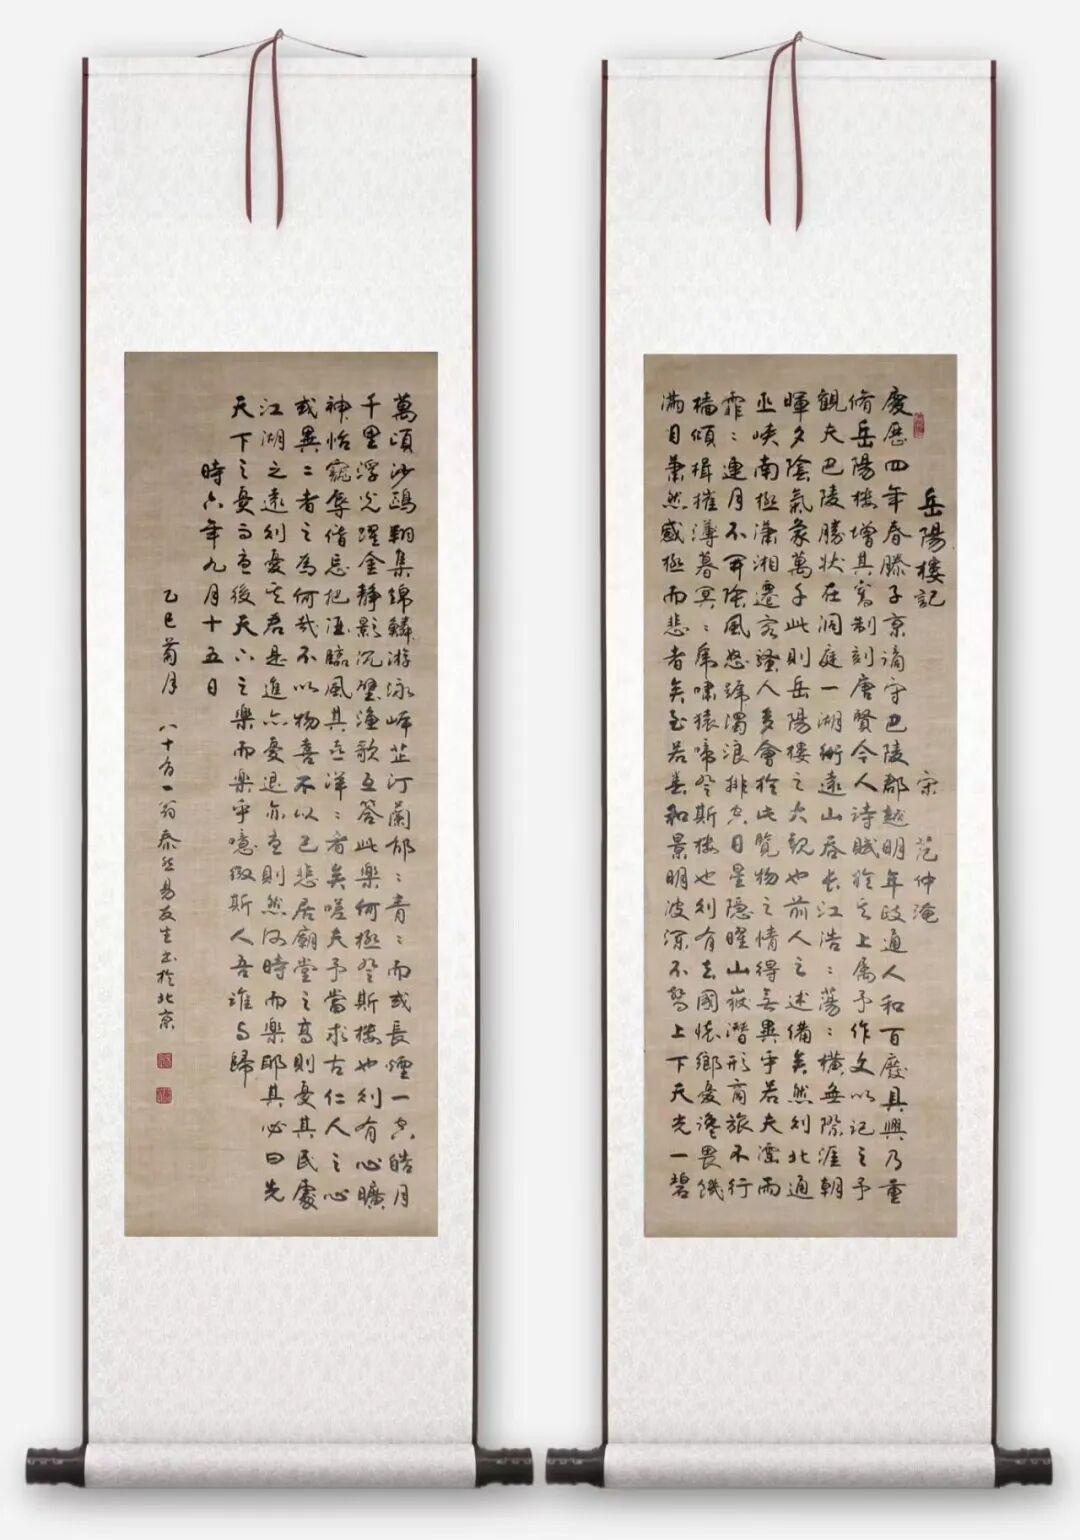 岳陽樓記 宋 范仲淹
慶歷四年春滕子京謫守巴陵郡越明年政通人和百廢具興乃重
脩岳陽樓增其舊制刻唐賢今人詩賦於其上属予作文以記之予
觀夫巴陵勝狀在洞庭一湖銜遠山吞長江浩:蕩:橫無際涯朝
暉夕陰氣象萬千此則岳陽樓之大觀也前人之述備矣然則北通
巫峽南極瀟湘遷客騷人多會於此覽物之情得無異乎若夫霪雨
霏:連月不開陰風怒號濁浪排空日星隱曜山嶽潛形商旅不行
檣傾楫摧薄暮冥:虎嘯猿啼登斯樓也則有去國懷鄉憂讒畏譏
滿目蕭然感極而悲者矣至若春和景明波瀾不驚上下天光一碧
萬頃沙鷗翔集錦鱗游泳岸芷汀蘭郁:青:而或長煙一空皓月
千里浮光躍金靜影沉璧漁歌互答此樂何極登斯樓也則有心曠
神怡寵辱偕忘把酒臨風其喜洋:者矣嗟夫予嘗求古仁人之心
或異二者之為何哉不以物喜不以己悲居廟堂之高則憂其民處
江湖之遠則憂其君是進亦憂退亦憂則然何時而樂耶其必曰先
天下之憂而憂後天下之樂而樂乎噫微斯人吾誰與歸
時六年九月十五日
乙巳菊月 八十有一翁泰然易友生書於北京